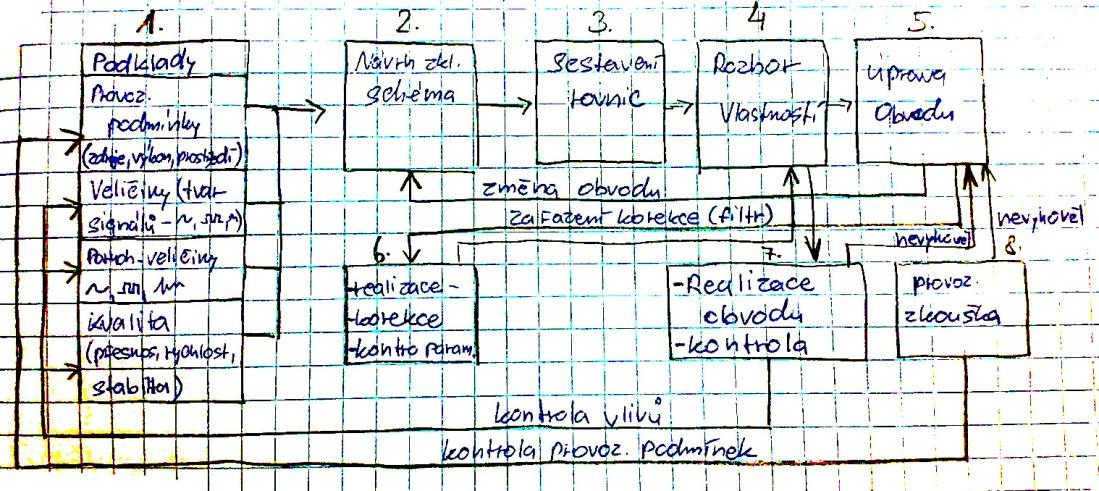 1.
Podklady
Provoz.
podmínky
(zdroje, výkon, prostředí)
Veličiny (tvar
signálů - ~,
Poruch. veličiny
kvalita
(přesnos, rychlost,
stabilita)
2.
Návrh zkl.
schéma
3.
Sestavení
rovnic
4
Rozbor
Vlastností
5.
úprava
Obvodu
změna obvodu
zařazení korekce (filtr)
nevyhověl
nevyhověl
6.
-realizace-
-korekce
-kontro param.
7.
-Realizace
obvodu
-kontrola
8.
provoz.
zkouška
kontrola vlivů
kontrola provoz. podmínek